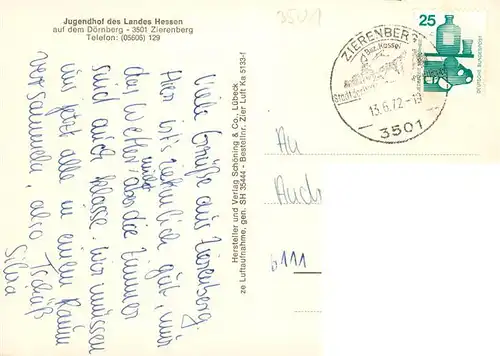 Jugendhof des Landes Hessen
auf dem Dörnberg - 3501 Zierenberg
Telefon: (05606) 129
35 U 1
25
DEUTSCHE BUNDESPOST
ZIERENBERG
Bez. Kassel
13.6.72-19
3501
Viele Grüße aus Zierenberg.
Hier ist's ziemlich gut, nur
der Wetter nicht, aber die Zimmer
sind auch klasse. Wir müssen
uns jetzt alle in einem Raum
versammeln, also Tschüß
Silvia
Hersteller und Verlag Schöning & Co., Lübeck
ze Luftaufnahme, gen. SH 35444 - Bestellnr. Zier Luft Ka 5133-f
An
6111